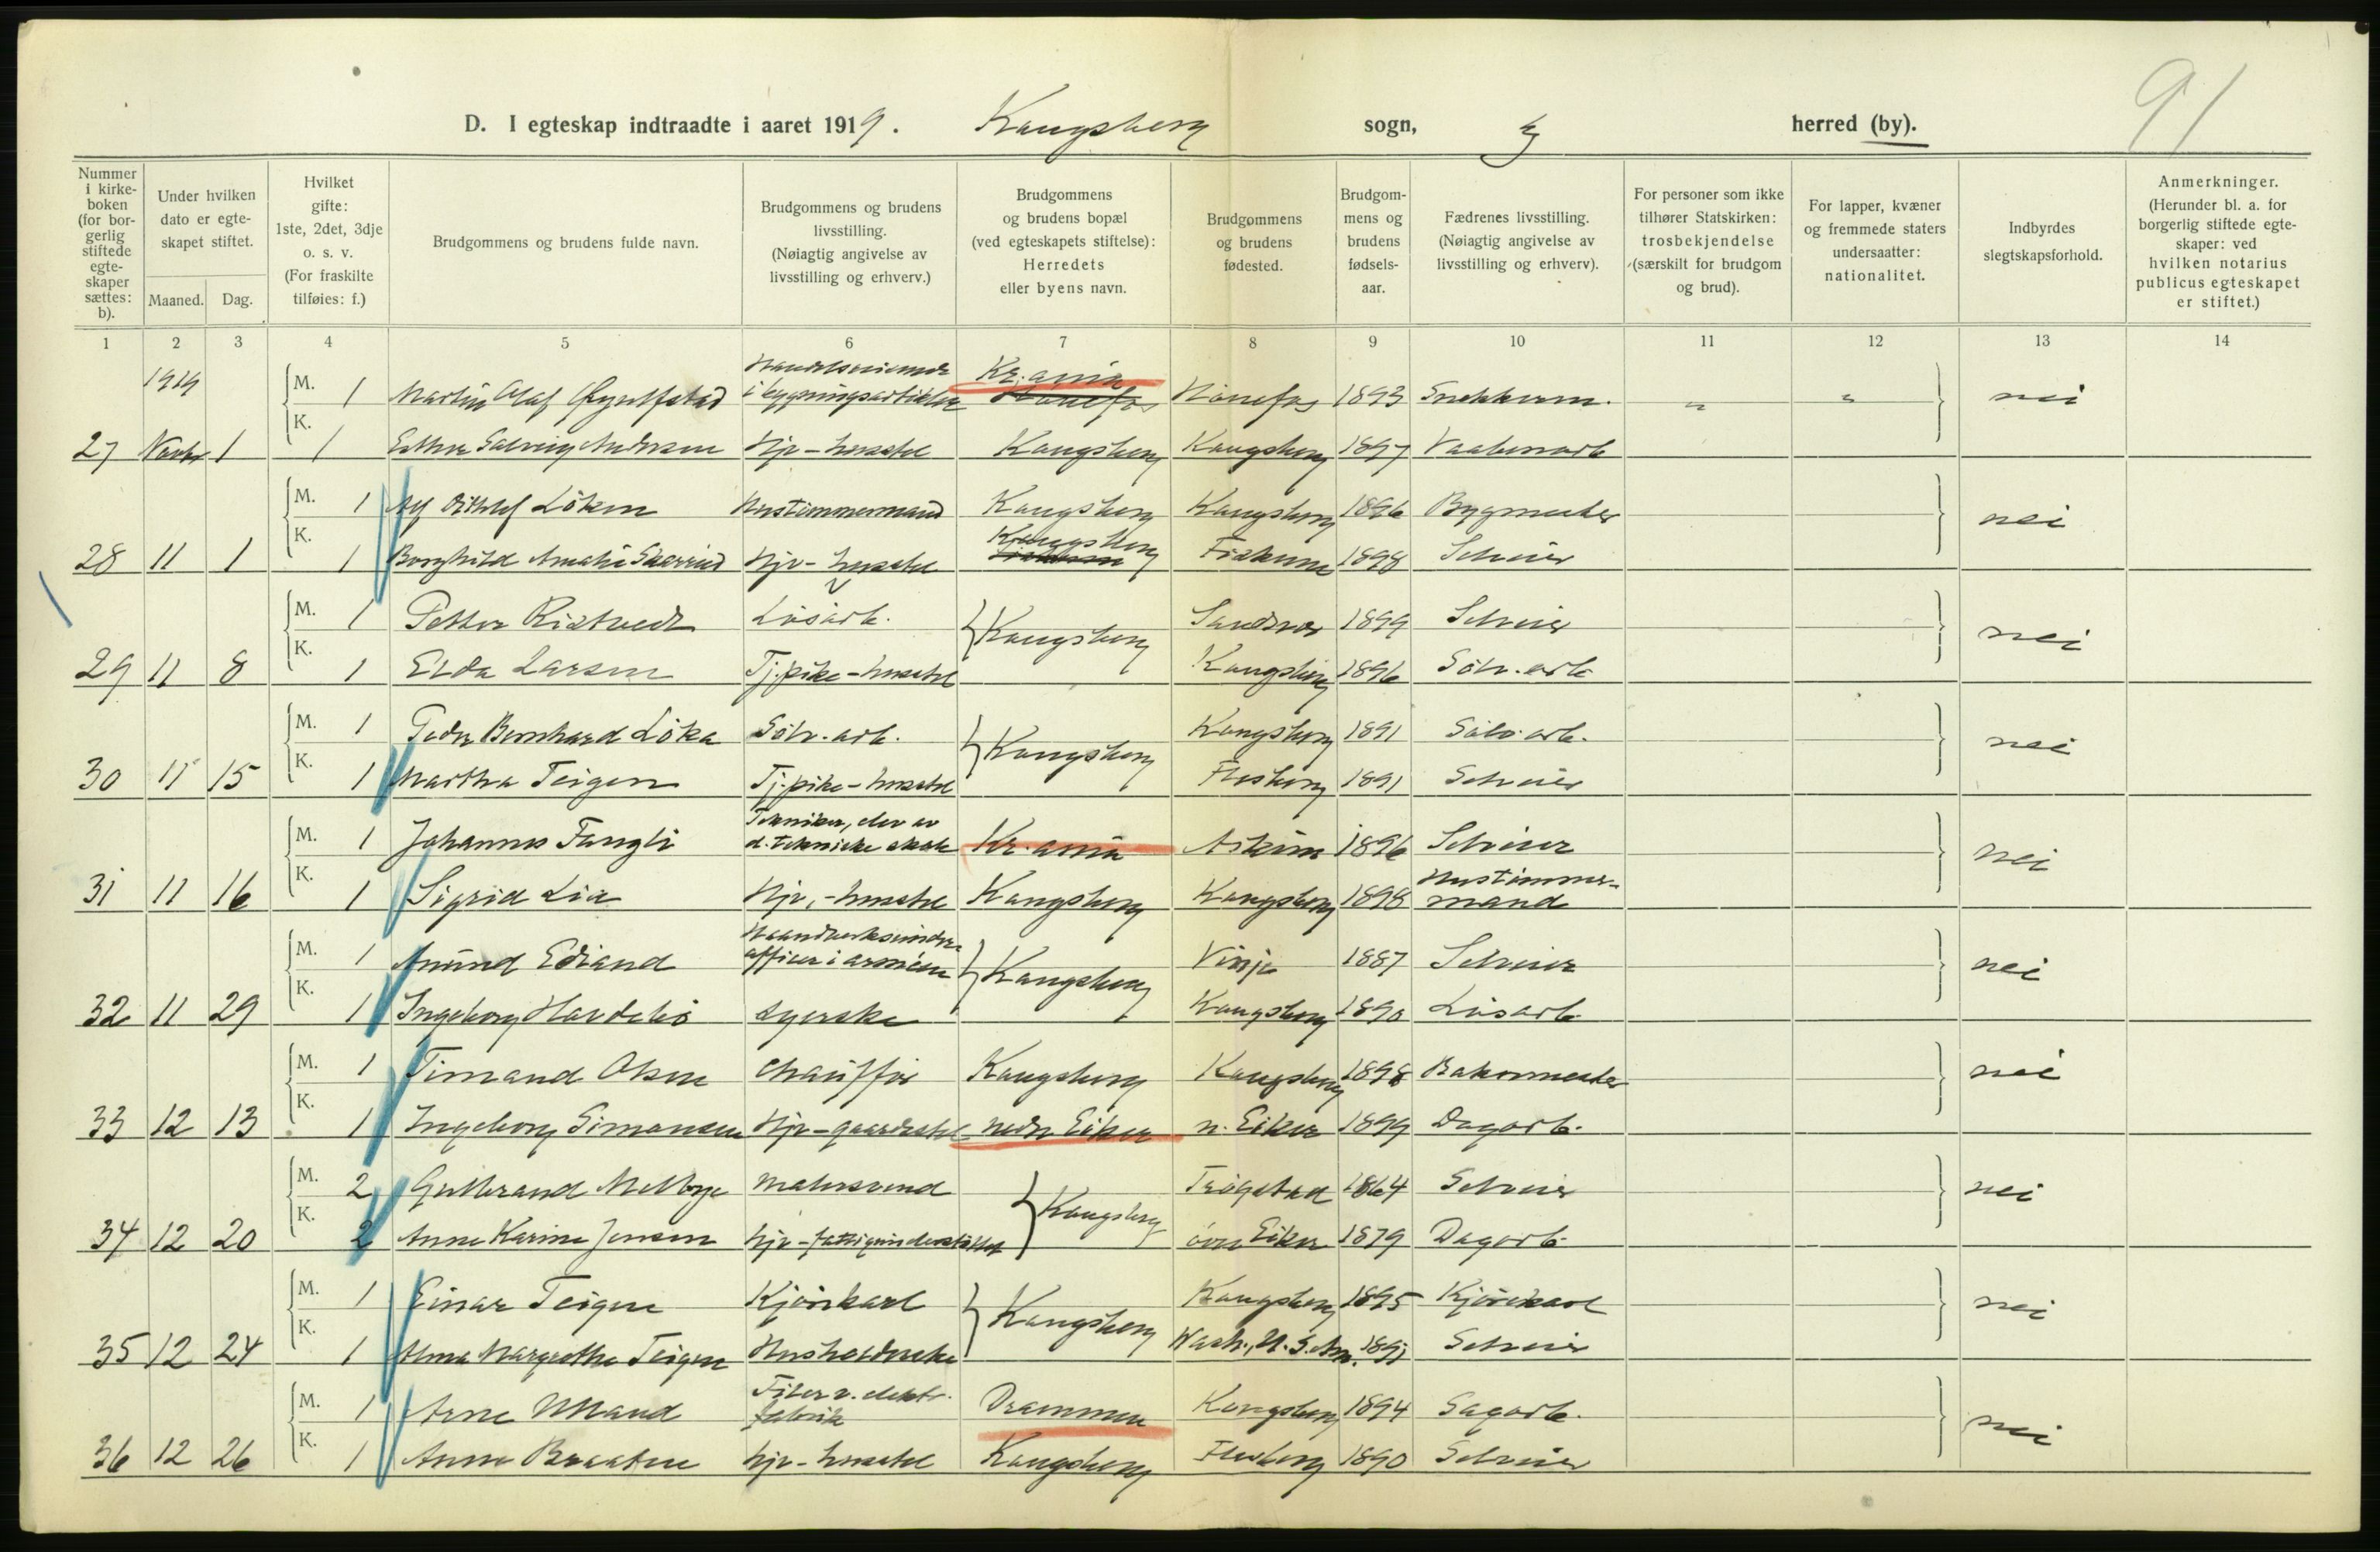 91
D. I egteskap indtraadte i aaret 1919. Kongsberg sogn, herred (by).
Nummer i kirkeboken (for borgerlig stiftede egteskaper sættes: b).
Under hvilken dato er egteskapet stiftet.
Maaned. Dag.
Hvilket gifte: 1ste, 2det, 3dje o. s. v. (For fraskilte tilføies: f.)
Brudgommens og brudens fulde navn.
Brudgommens og brudens livsstilling. (Nøiagtig angivelse av livsstilling og erhverv.)
Brudgommens og brudens bopæl (ved egteskapets stiftelse): Herredets eller byens navn.
Brudgommens og brudens fødested.
Brudgommens og brudens fødselsaar.
Fædrenes livsstilling. (Nøiagtig angivelse av livsstilling og erhverv).
For personer som ikke tilhører Statskirken: trosbekjendelse (særskilt for brudgom og brud).
For lapper, kvæner og fremmede staters undersaatter: nationalitet.
Indbyrdes slegtskapsforhold.
Anmerkninger. (Herunder bl. a. for borgerlig stiftede egteskaper: ved hvilken notarius publicus egteskapet er stiftet.)
1 2 3 4 5 6 7 8 9 10 11 12 13 14
1919 M. 1 Martin Olaf i bygningsartikler Kr.ania Hönefos Hönefos 1893 Snekkerm. " " nei
27 Novbr 1 K. 1 Esther Solveig Andersen Hjv-husstel Kongsberg Kongsberg 1897 Vaabenarb
M. 1 Alf Ditlef Löken Hustömmermand Kongsberg Kongsberg 1896 Bygmester nei
28 11 1 K. 1 Borghild Amalie Skarrud Hjv-husstel Kongsberg Fiskum 1898 Selveier
M. 1 Petter Ristvedt Lösarb. Kongsberg Sandsvær 1899 Selveier nei
29 11 8 K. 1 Elda Larsen Tj.pike-husstel Kongsberg 1896 Sölv.arb
M. 1 Peder Bernhard Löka Sölv.arb. Kongsberg Kongsberg 1891 Sölv.arb. nei
30 11 15 K. 1 Martha Teigen Tj.pike-husstel Flesberg 1891 Selveier
M. 1 Johannes Fungli Tekniker, elev av d. tekniske skole Kr.ania Askim 1896 Selveier nei
31 11 16 K. 1 Sigrid Lia Hjv.-husstel Kongsberg Kongsberg 1898 Hustömmermand
M. 1 Amund Edland Haandverksunderofficer i armeen Kongsberg Vinje 1887 Selveier nei
32 11 29 K. 1 Ingeborg Syerske Kongsberg 1890 Lösarb
M. 1 Timand Olsen Chauffør Kongsberg Kongsberg 1898 Bakermester nei
33 12 13 K. 1 Ingeborg Simonsen Hjv-gaardsstel nedre Eiker n. Eiker 1899 Dagarb.
M. 2 Gulbrand Melbye Malersvend Kongsberg Trögstad 1864 Selveier nei
34 12 20 K. 2 Anne Karine Jensen Hjv-fattigunderstöttet övre Eiker 1879 Dagarb
M. 1 Einar Teigen Kjörekarl Kongsberg Kongsberg 1895 Kjörekarl nei
35 12 24 K. 1 Alma Margrethe Teigen Husholderske Wash., U.S.Am. Selveier
M. 1 Arne Ulland Filer v. elektr. fabrik Drammen Kongsberg 1894 Sagarb. nei
36 12 26 K. 1 Anna Braaten Hjv-husstel Kongsberg Flesberg 1890 Selveier